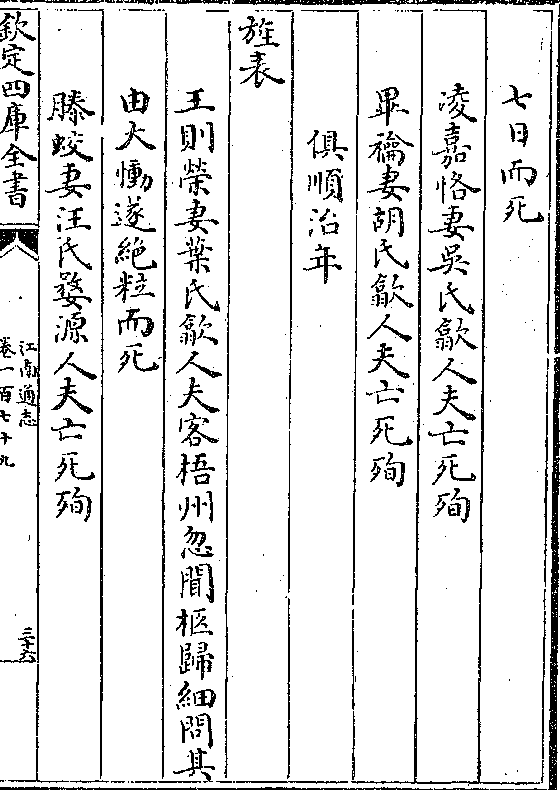 七日而死
凌嘉恪妻吳氏歙人夫亡死殉
畢禴妻胡氏歙人夫亡死殉
俱順治年
旌表
王則榮妻葉氏歙人夫客梧州忽聞柩歸細問其
由大慟遂絶粒而死
滕蛟妻汪氏婺源人夫亡死殉
欽定四庫全書
江南通志
卷一百七十九
三十六